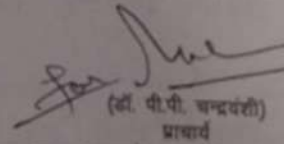 (डॉ. पी.पी. चन्द्रवंशी)
प्राचार्य